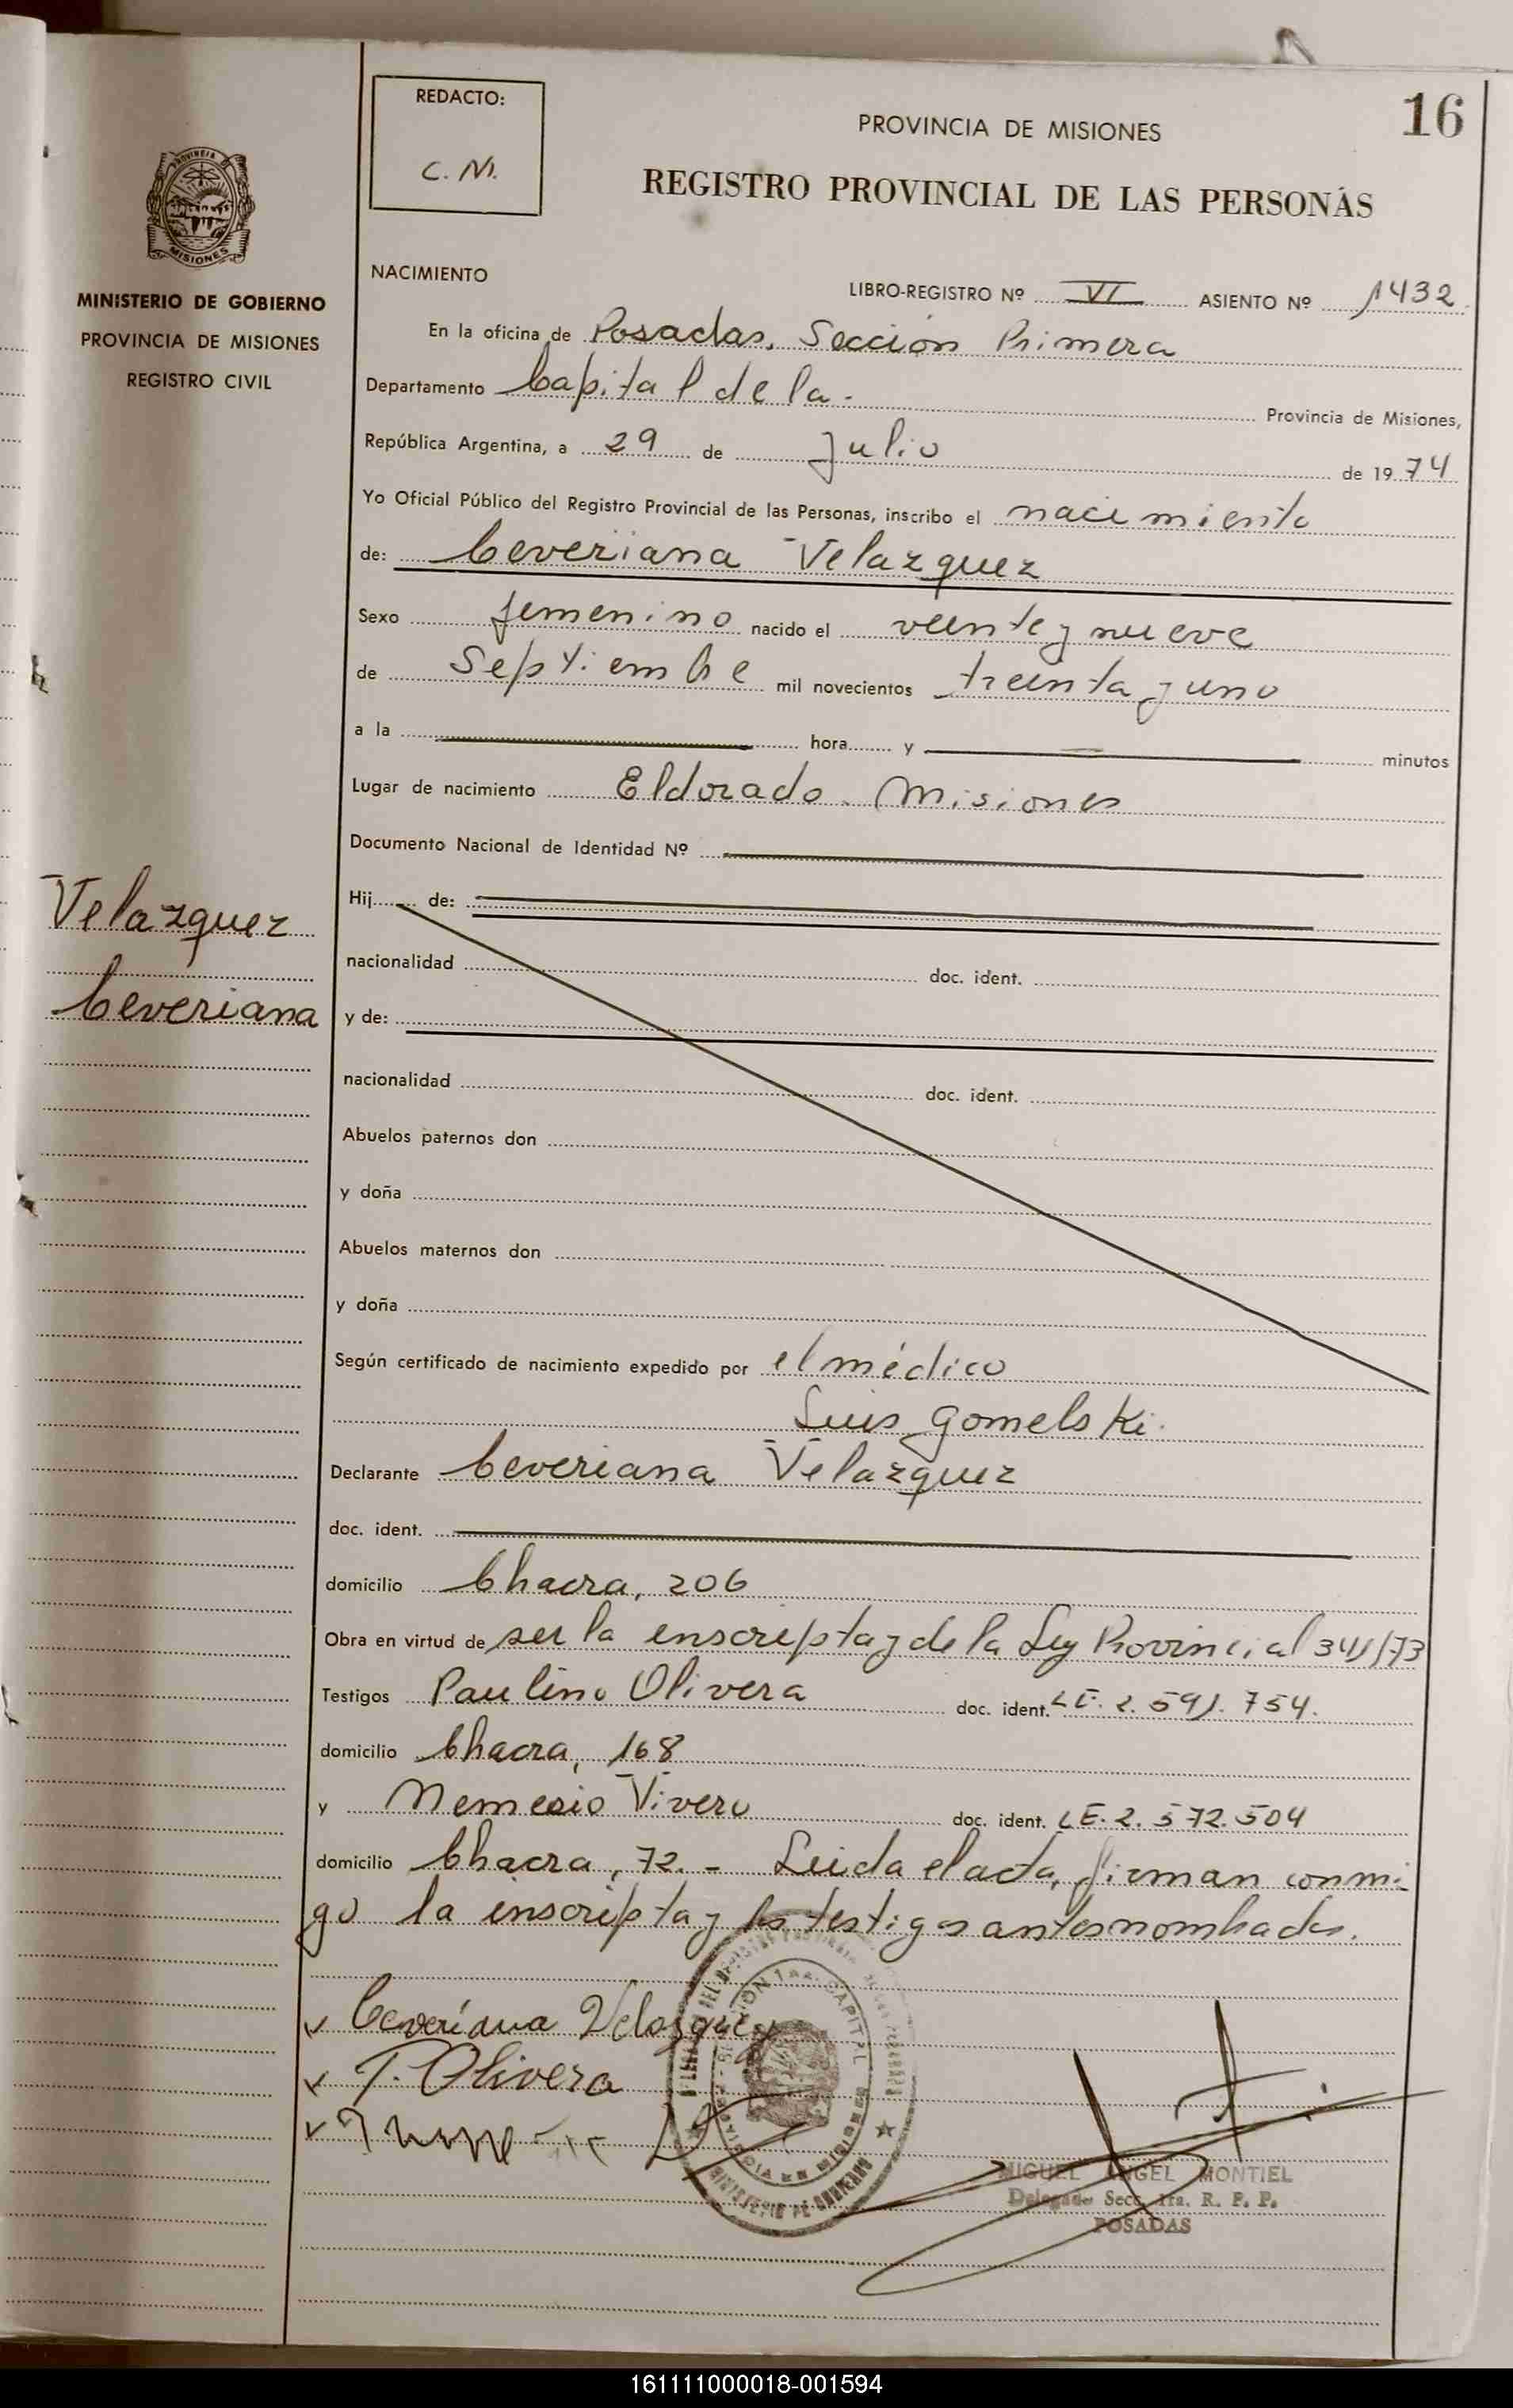 REDACTO:
C. M.
PROVINCIA DE MISIONES
16
REGISTRO PROVINCIAL DE LAS PERSONAS
PROVINCIA
MISIONES
MINISTERIO DE GOBIERNO
PROVINCIA DE MISIONES
REGISTRO CIVIL
NACIMIENTO
LIBRO-REGISTRO Nº VI ASIENTO Nº 1432
En la oficina de Posadas, Sección Primera
Departamento Capital de la. Provincia de Misiones,
República Argentina, a 29 de Julio de 1974
Yo Oficial Público del Registro Provincial de las Personas, inscribo el nacimiento
de: Ceveriana Velazquez
Sexo femenino nacido el veinte y nueve
de Septiembre mil novecientos treinta y uno
a la hora y minutos
Lugar de nacimiento Eldorado. Misiones
Documento Nacional de Identidad Nº
Velazquez
Ceveriana
Hij de:
nacionalidad doc. ident.
y de:
nacionalidad doc. ident.
Abuelos paternos don
y doña
Abuelos maternos don
y doña
Según certificado de nacimiento expedido por el médico
Luis Gomelski.
Declarante Ceveriana Velazquez
doc. ident.
domicilio Chacra, 206
Obra en virtud de ser la inscripta y de la Ley Provincial 341/73
Testigos Paulino Olivera doc. ident. LE. 2. 591. 754.
domicilio Chacra, 168
y Nemecio Vivero doc. ident. LE. 2. 572. 504
domicilio Chacra, 72. - Leida el acta, firman conmi-
go la inscripta y los testigos antesnombrados.
Ceveriana Velazquez
P. Olivera
SECCION 1ra. CAPITAL
MINISTERIO DE GOBIERNO
MIGUEL ANGEL MONTIEL
Delegado Secc. 1ra. R. P. P.
POSADAS
161111000018-001594